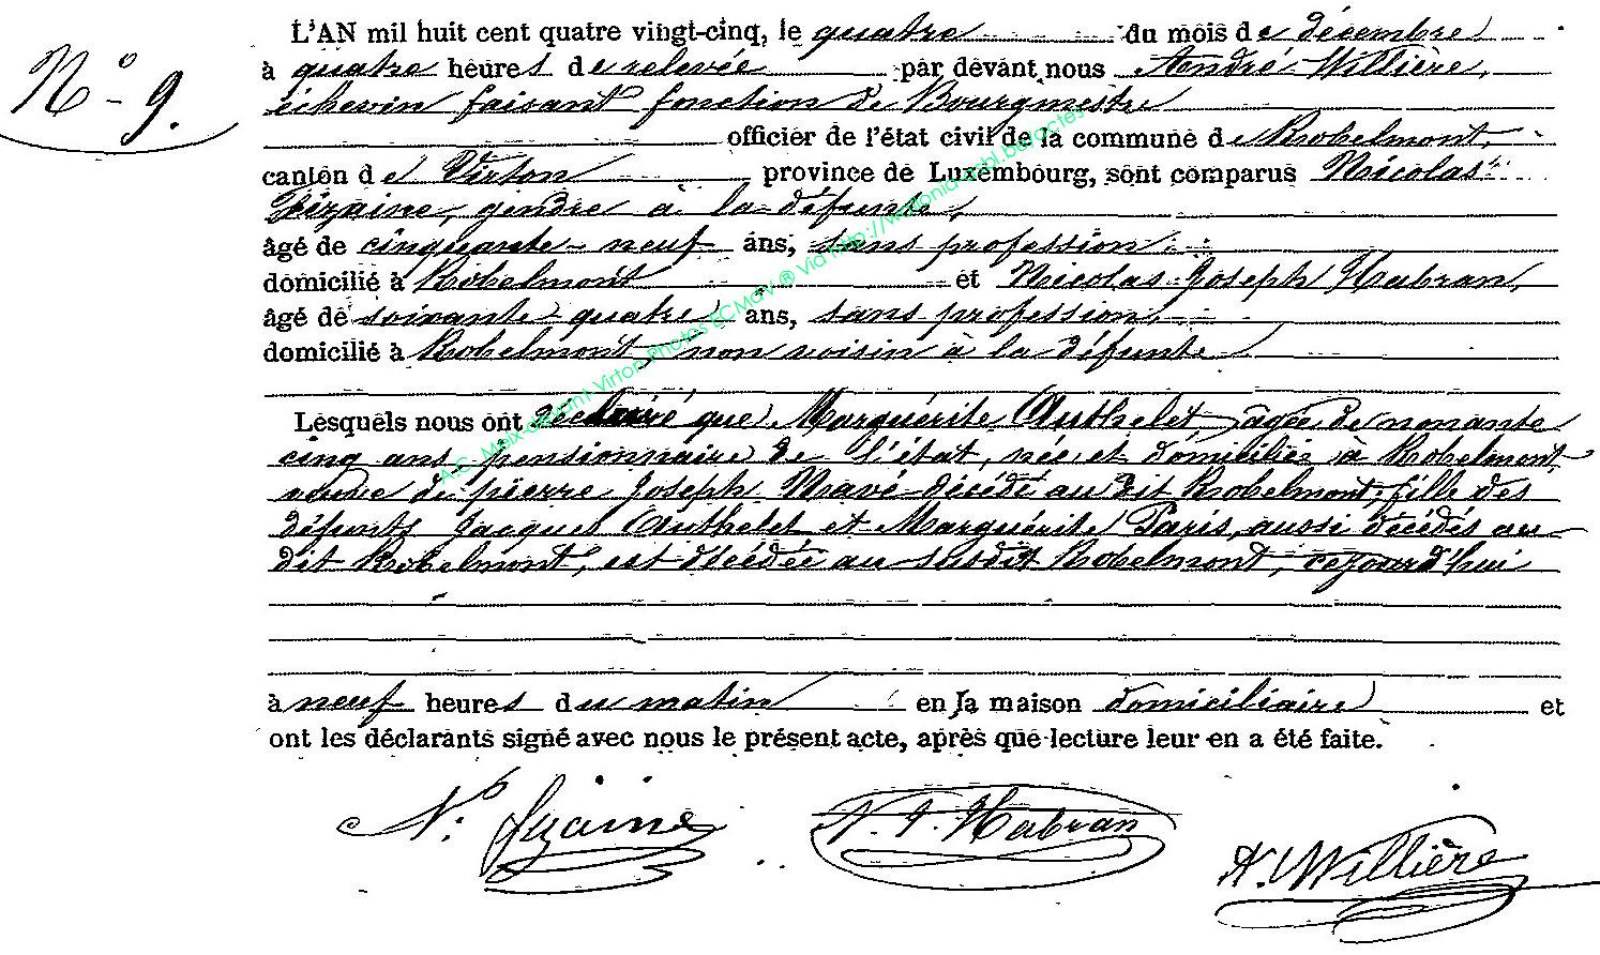 N° 9.
L'AN mil huit cent quatre vingt-cinq, le quatre du mois de décembre
à quatre heures de relevée par devant nous André Willière,
échevin faisant fonction de Bourgmestre
officier de l'état civil de la commune de Robelmont,
canton de Virton province de Luxembourg, sont comparus Nicolas
Fizaine, gendre à la défunte,
âgé de cinquante-neuf ans, sans profession
domicilié à Robelmont et Nicolas Joseph Habran,
âgé de soixante-quatre ans, sans profession,
domicilié à Robelmont non voisin à la défunte
Lesquels nous ont déclaré que Marguérite Authelet, âgée de nonante
cinq ans, pensionnaire de l'état, née et domiciliée à Robelmont,
veuve de pierre Joseph Navé décédé au dit Robelmont, fille des
défunts Jacques Authelet et Marguérite Paris, aussi décédés au
dit Robelmont, est décédée au susdit Robelmont, cejourd'hui
à neuf heures du matin en la maison domiciliaire et
ont les déclarants signé avec nous le présent acte, après que lecture leur en a été faite.
N. Fizaine
N. J. Habran
A. Willière